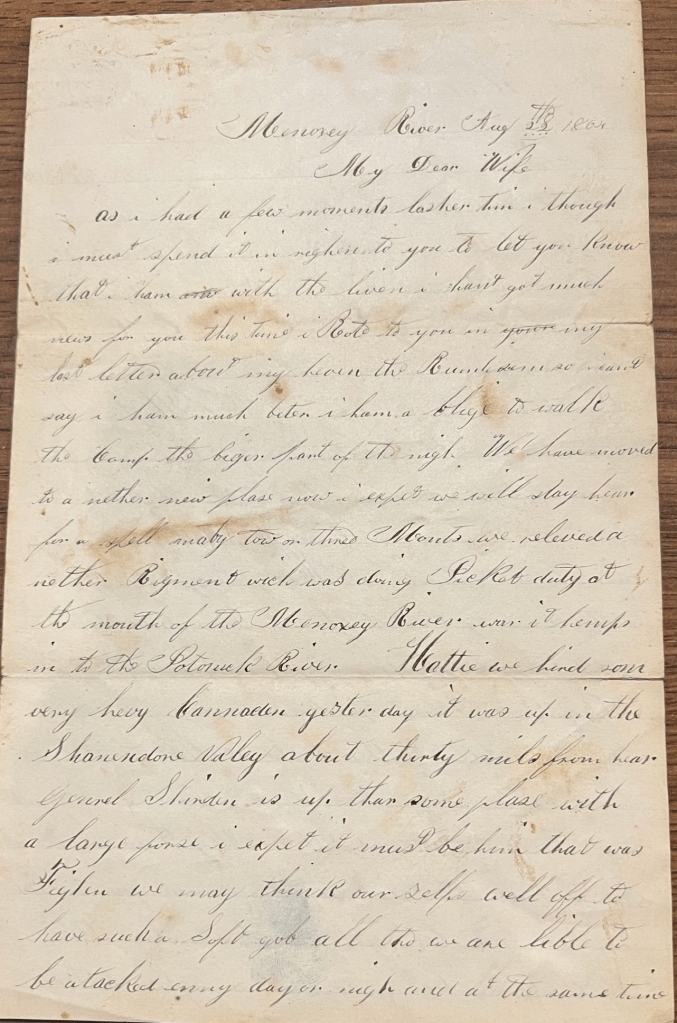 Menoxey River Aug 28th 186
My Dear Wife
as i had a few moments lasher tim i though
i must spend it in righen to you to let you know
that i ham am with the liven i hant got much
news for you this time i Rote to you in your my
last letter about my heven the Rumhism so i cant
say i ham much beter i ham a blige to walk
the Camp the biger part of the nigh We have moved
to a nether new plase now i expet we will stay hear
for a spell maby tow or three Monts we releved a
nether Rigment wich was doing Picket duty at
the mouth of the Menoxey River war it hemps
in to the Potomuck River Hattie we hird som
very hevy Cannaden yesterday it was up in the
Shanendore Valey about thirty mils from hear
Genrel Shirden is up thar some plase with
a large forse i expet it must be him that was
Figten we may think our selfs well off to
have such a Soft gob all tho we are lible to
be atacked enny day or nigh and at the same time